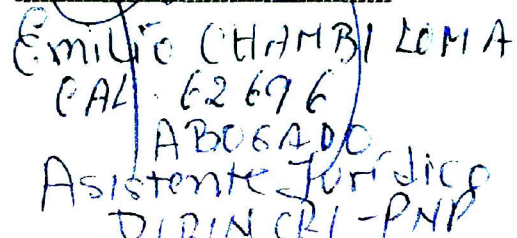 Emilio CHAMBI LOMA
CAL. 62696
ABOGADO
Asistente Jurídico
DIRINCRI-PNP